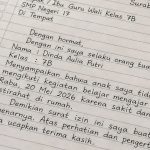 Surab
/ Ibu Guru Wali Kelas 7B
SMP Negeri 17
Di Tempat
Dengan hormat,
Dengan ini saya selaku orang tua
Nama : Dinda Aulia Putri
Kelas : 7B
Menyampaikan bahwa anak saya tidak
mengikuti kegiatan belajar mengajar
Rabu, 20 Mei 2026 karena sakit dan
istirahat di rumah.
Demikian surat izin ini saya buat
benarnya. Atas perhatian dan pengert
ucapkan terima kasih.